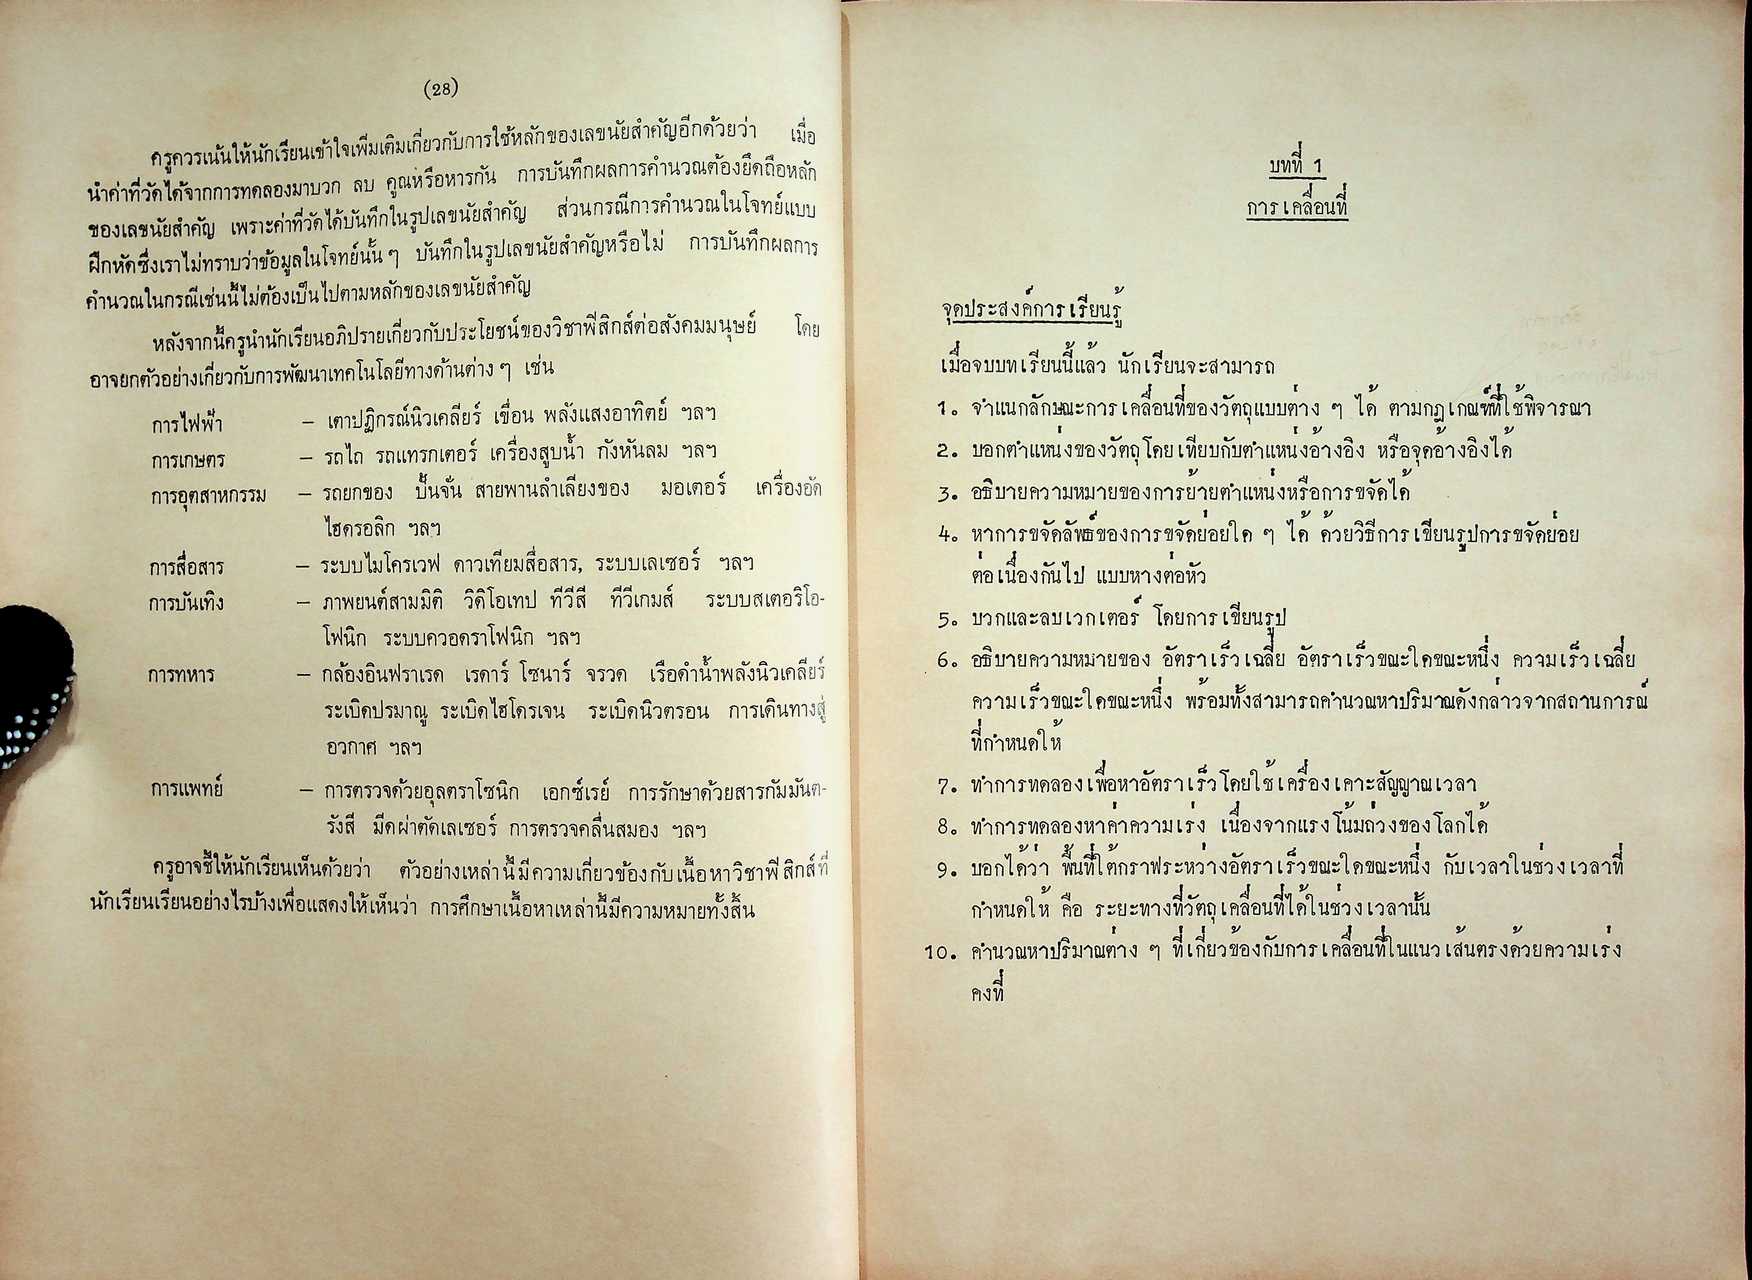 (28)
ครูควรเน้นให้นักเรียนเข้าใจเพิ่มเติมเกี่ยวกับการใช้หลักของเลขนัยสำคัญอีกด้วยว่า เมื่อ
นำค่าที่วัดได้จากการทดลองมาบวก ลบ คูณหรือหารกัน การบันทึกผลการคำนวณต้องยึดถือหลัก
ของเลขนัยสำคัญ เพราะค่าที่วัดได้บันทึกในรูปเลขนัยสำคัญ ส่วนกรณีการคำนวณในโจทย์แบบ
ฝึกหัดซึ่งเราไม่ทราบว่าข้อมูลในโจทย์นั้น ๆ บันทึกในรูปเลขนัยสำคัญหรือไม่ การบันทึกผลการ
คำนวณในกรณีเช่นนี้ไม่ต้องเป็นไปตามหลักของเลขนัยสำคัญ
หลังจากนี้ครูนำนักเรียนอภิปรายเกี่ยวกับประโยชน์ของวิชาฟิสิกส์ต่อสังคมมนุษย์ โดย
อาจยกตัวอย่างเกี่ยวกับการพัฒนาเทคโนโลยีทางด้านต่าง ๆ เช่น
การไฟฟ้า – เตาปฏิกรณ์นิวเคลียร์ เขื่อน พลังแสงอาทิตย์ ฯลฯ
การเกษตร – รถไถ รถแทรกเตอร์ เครื่องสูบน้ำ กังหันลม ฯลฯ
การอุตสาหกรรม – รถยกของ ปั้นจั่น สายพานลำเลียงของ มอเตอร์ เครื่องอัด
ไฮดรอลิก ฯลฯ
การสื่อสาร – ระบบไมโครเวฟ ดาวเทียมสื่อสาร, ระบบเลเซอร์ ฯลฯ
การบันเทิง – ภาพยนต์สามมิติ วิดิโอเทป ทีวีสี ทีวีเกมส์ ระบบสเตอริโอ-
โฟนิก ระบบควอดราโฟนิก ฯลฯ
การทหาร – กล้องอินฟราเรด เรดาร์ โซนาร์ จรวด เรือดำน้ำพลังนิวเคลียร์
ระเบิดปรมาณู ระเบิดไฮโดรเจน ระเบิดนิวตรอน การเดินทางสู่
อวกาศ ฯลฯ
การแพทย์ – การตรวจด้วยอุลตราโซนิก เอกซ์เรย์ การรักษาด้วยสารกัมมันต-
รังสี มีดผ่าตัดเลเซอร์ การตรวจคลื่นสมอง ฯลฯ
ครูอาจชี้ให้นักเรียนเห็นด้วยว่า ตัวอย่างเหล่านี้มีความเกี่ยวข้องกับเนื้อหาวิชาฟิสิกส์ที่
นักเรียนเรียนอย่างไรบ้างเพื่อแสดงให้เห็นว่า การศึกษาเนื้อหาเหล่านี้มีความหมายทั้งสิ้น
บทที่ 1
การเคลื่อนที่
จุดประสงค์การเรียนรู้
เมื่อจบบทเรียนนี้แล้ว นักเรียนจะสามารถ
1. จำแนกลักษณะการเคลื่อนที่ของวัตถุแบบต่าง ๆ ได้ ตามกฎเกณฑ์ที่ใช้พิจารณา
2. บอกตำแหน่งของวัตถุโดยเทียบกับตำแหน่งอ้างอิง หรือจุดอ้างอิงได้
3. อธิบายความหมายของการย้ายตำแหน่งหรือการขจัดได้
4. หาการขจัดลัพธ์ของการขจัดย่อยใด ๆ ได้ ด้วยวิธีการเขียนรูปการขจัดย่อย
ต่อเนื่องกันไป แบบหางต่อหัว
5. บวกและลบเวกเตอร์ โดยการเขียนรูป
6. อธิบายความหมายของ อัตราเร็วเฉลี่ย อัตราเร็วขณะใดขณะหนึ่ง ความเร็วเฉลี่ย
ความเร็วขณะใดขณะหนึ่ง พร้อมทั้งสามารถคำนวณหาปริมาณดังกล่าวจากสถานการณ์
ที่กำหนดให้
7. ทำการทดลองเพื่อหาอัตราเร็วโดยใช้เครื่องเคาะสัญญาณเวลา
8. ทำการทดลองหาค่าความเร่ง เนื่องจากแรงโน้มถ่วงของโลกได้
9. บอกได้ว่า พื้นที่ใต้กราฟระหว่างอัตราเร็วขณะใดขณะหนึ่ง กับเวลาในช่วงเวลาที่
กำหนดให้ คือ ระยะทางที่วัตถุเคลื่อนที่ได้ในช่วงเวลานั้น
10. คำนวณหาปริมาณต่าง ๆ ที่เกี่ยวข้องกับการเคลื่อนที่ในแนวเส้นตรงด้วยความเร่ง
คงที่